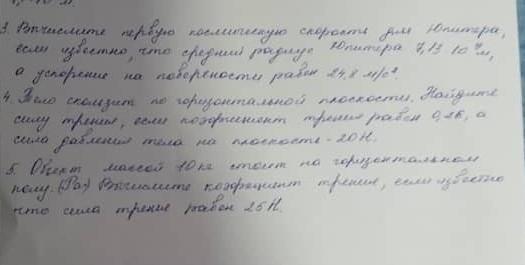 3. Вычислите первую космическую скорость для Юпитера,
если известно, что средний радиус Юпитера 7,13 10⁷ м,
а ускорение на поверхности равен 24,8 м/с².
4. Тело скользит по горизонтальной плоскости. Найдите
силу трения, если коэффициент трения равен 0,25, а
сила давления тела на плоскость - 20 Н.
5. Объект массой 10 кг стоит на горизонтальном
полу. Вычислите коэффициент трения, если известно
что сила трения равен 25 Н.